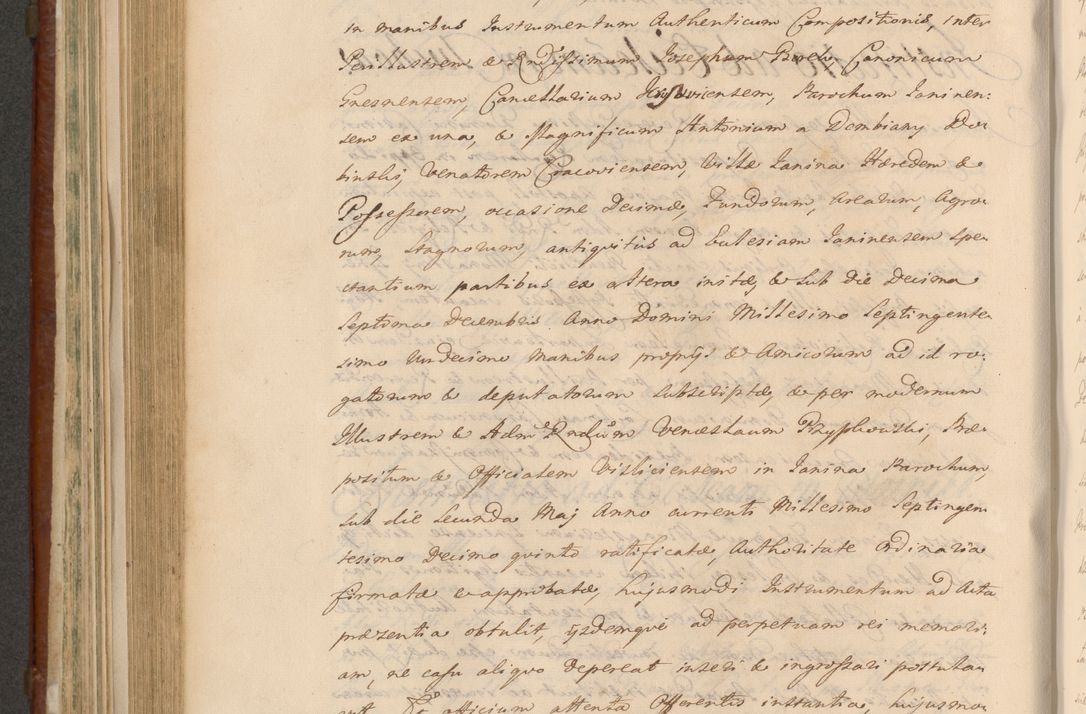 in manibus Instrumentum Authenticum Compositionis, inter
Perillustrem & Rndissimum Josephum Canonicum
Gnesnensem, Cancellarium Parochum Janinen:
sem ex una, & Magnificum Antonium a Dembiany Dem
binski, Venatorem Cracoviensem, Villæ Janina Hæredem &
Possessorem, occasione Decimæ, Fundorum, Arearum, Agro
rum, Stagnorum, antiquitus ad Ecclesiam Janinensem spe
ctantium partibus ex altera initæ, & sub die Decima
Septima Decembris Anno Domini Millesimo Septingente
simo Undecimo manibus proprijs & Amicorum ad id ro:
gatorum & deputatorum subscriptæ, & per modernum
Illustrem & Adm Rndum Venceslaum Przypkowski, Præ
positum & Officialem Visliciensem in Janina Parochum,
sub die Secunda Maj Anno currenti Millesimo Septingen
tesimo Decimo quinto ratificatæ, Authoritate ordinaria
firmatæ & approbatæ, hujusmodi Instrumentum ad Acta
præsentia obtulit, ijsdemque ad perpetuam rei memori:
am, ne casu aliquo depereat inseri & ingrossari postula
vit. Et officium attenta Offerentis instantia, hujusmo